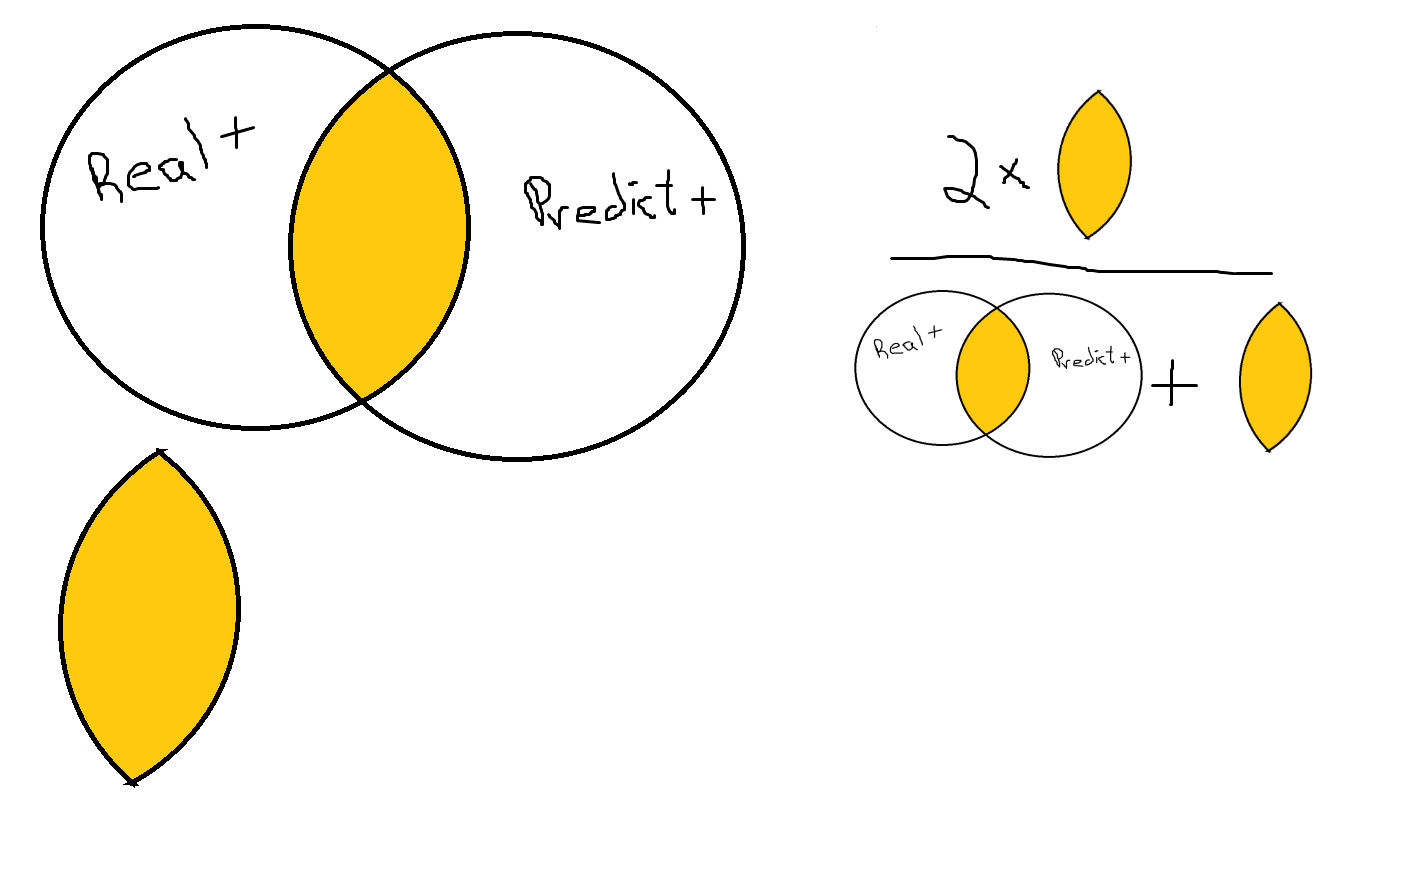 Real +
Predict +
2 ×
Real +
Predict +
+